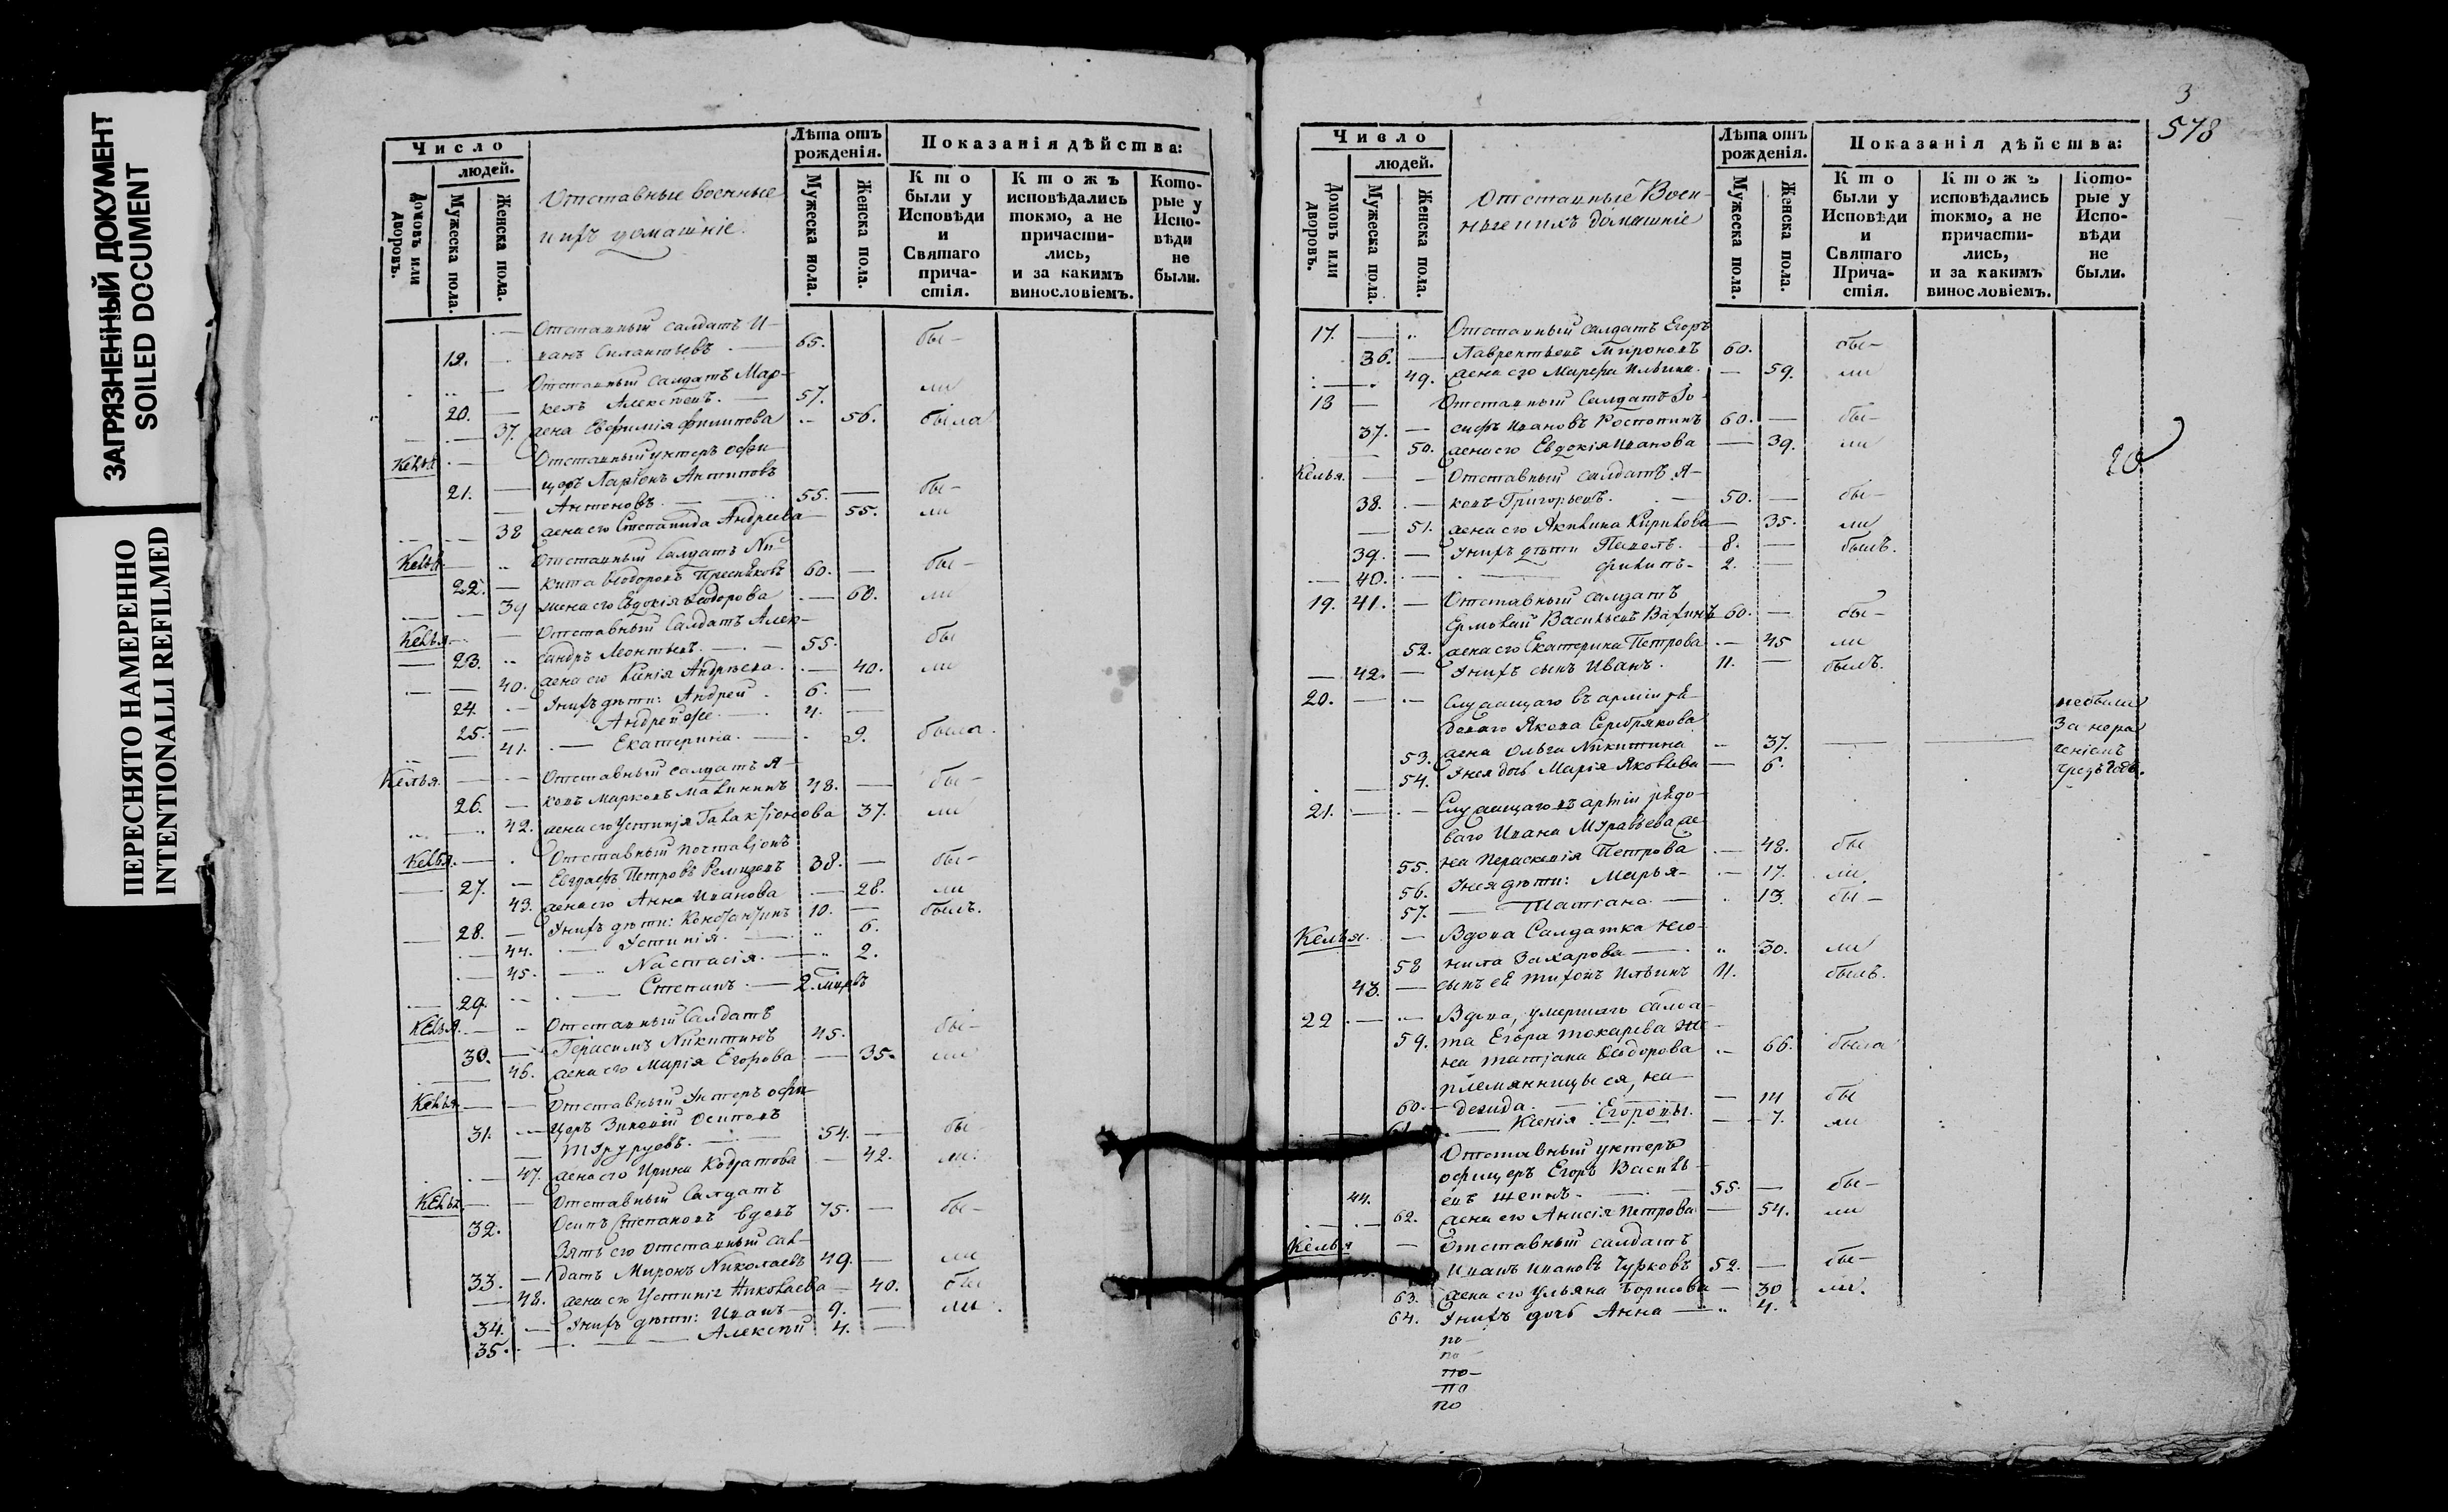 ЗАГРЯЗНЕННЫЙ ДОКУМЕНТ
SOILED DOCUMENT
ПЕРЕСНЯТО НАМЕРЕННО
INTENTIONALLI REFILMED
Число
людей.
Домовъ или дворовъ.
Мужеска пола.
Женска пола.
Отставные военные
и ихъ домашніе.
Лѣта отъ рожденія.
Мужеска пола.
Женска пола.
Показанія дѣйства:
Кто были у Исповѣди и Святаго причастія.
Ктожъ исповѣдались токмо, а не причастились, и за какимъ винословіемъ.
Которые у Исповѣди не были.
Отставный салдатъ И-
19. ванъ Силантьевъ 65. бы-
Отставный салдатъ Мар-
20. келъ Алексѣевъ. 57. ли
37. жена Евфимія Филипова 56. была
Келья Отставный унтеръ офи-
21. церъ Ларіонъ Антиповъ
Антоновъ. 55. бы-
38 жена его Степанида Андреева 55. ли
Келья Отставный салдатъ Ни-
22. кита Ѳеодоровъ Пресняковъ 60. бы-
39 жена его Евдокія Ѳеодорова 60. ли
Келья Отставный салдатъ Алек-
23. сандръ Леонтьевъ. 55. бы
40. жена его Ксенія Андреева. 40. ли
24. У нихъ дѣти: Андрей 6.
25. Андрей же 4.
41. Екатерина. 9. была
Келья Отставный салдатъ Я-
26. ковъ Марковъ Малининъ 48. бы-
42. жена его Устинія Галактіонова 37. ли
Келья Отставный почталіонъ
27. Евграфъ Петровъ Ремизовъ 38. бы-
43. жена его Анна Иванова 28. ли
28. У нихъ дѣти: Константинъ 10. былъ.
44. Устинія. 6.
45. Настасія. 2.
29. Степанъ 2.
Келья Отставный салдатъ
30. Герасимъ Никитинъ 45. бы-
46. жена его Марія Егорова 35. ли
Келья Отставный унтеръ офи-
31. церъ Зиновій Осиповъ
54. бы
47. жена его Ирина 42. ли.
Келья Отставный салдатъ
32. Осипъ Степановъ вдовъ 75. бы-
Зять его отставный сал-
33. датъ Миронъ Николаевъ 49. ли
48. жена его Устинія Николаева 40. бы
34. У нихъ дѣти: Иванъ 9. ли
35. Алексѣй 4.
3
578
Число
людей.
Домовъ или дворовъ.
Мужеска пола.
Женска пола.
Отставные Воен-
ные и ихъ домашніе
Лѣта отъ рожденія.
Мужеска пола.
Женска пола.
Показанія дѣйства:
Кто были у Исповѣди и Святаго Причастія.
Ктожъ исповѣдались токмо, а не причастились, и за какимъ винословіемъ.
Которые у Исповѣди не были.
17. Отставный салдатъ Егоръ
36. Лаврентьевъ Мироновъ 60. бы-
49. жена его Марфа Ильина. 59. ли
18 Отставный салдатъ Іо-
37. сифъ Ивановъ 60. бы-
50. жена его Евдокія Иванова 39. ли
20
Келья. Отставный салдатъ Я-
38. ковъ Григорьевъ. 50. бы-
51. жена его Акилина Кирилова 35. ли
39. У нихъ дѣти Павелъ. 8. былъ.
40. Филипъ 2.
19. 41. Отставный салдатъ
Ермолай Васильевъ 60. бы-
52. жена его Екатерина Петрова 45 ли
42. У нихъ сынъ Иванъ. 11. былъ.
20. Служащаго въ арміи ря- не были
доваго Якова Серебрякова За нера-
53. жена Ольга Никитина 37. чрезъ годъ.
54. У нея дочь Марія Яковлева 6.
21. Служащаго въ арміи рядо-
ваго Ивана Муравьева же-
55. на Параскевія Петрова 48. бы
56. У нея дѣти: Марья 17. ли
57. Татіана 13. бы-
Келья. Вдова Салдатка Нео-
58 нила Захарова 30. ли
43. сынъ её Тихонъ Ильинъ 11. былъ.
22 Вдова, умершаго салда-
59. та Егора Токарева же-
на Татіана Ѳеодорова 66. была
племянницы ея, На-
60. дежда 14 бы
61. Ксенія Егоровы. 7. ли
Отставный унтеръ
офицеръ Егоръ Василь-
44. евъ 55. бы-
62. жена его Анисія Петрова 54. ли
Келья Отставный салдатъ
Иванъ Ивановъ Чурковъ 52. бы-
63. жена его Ульяна Борисова 30 ли.
64. У нихъ дочь Анна 4.
по-
по
по-
по
по